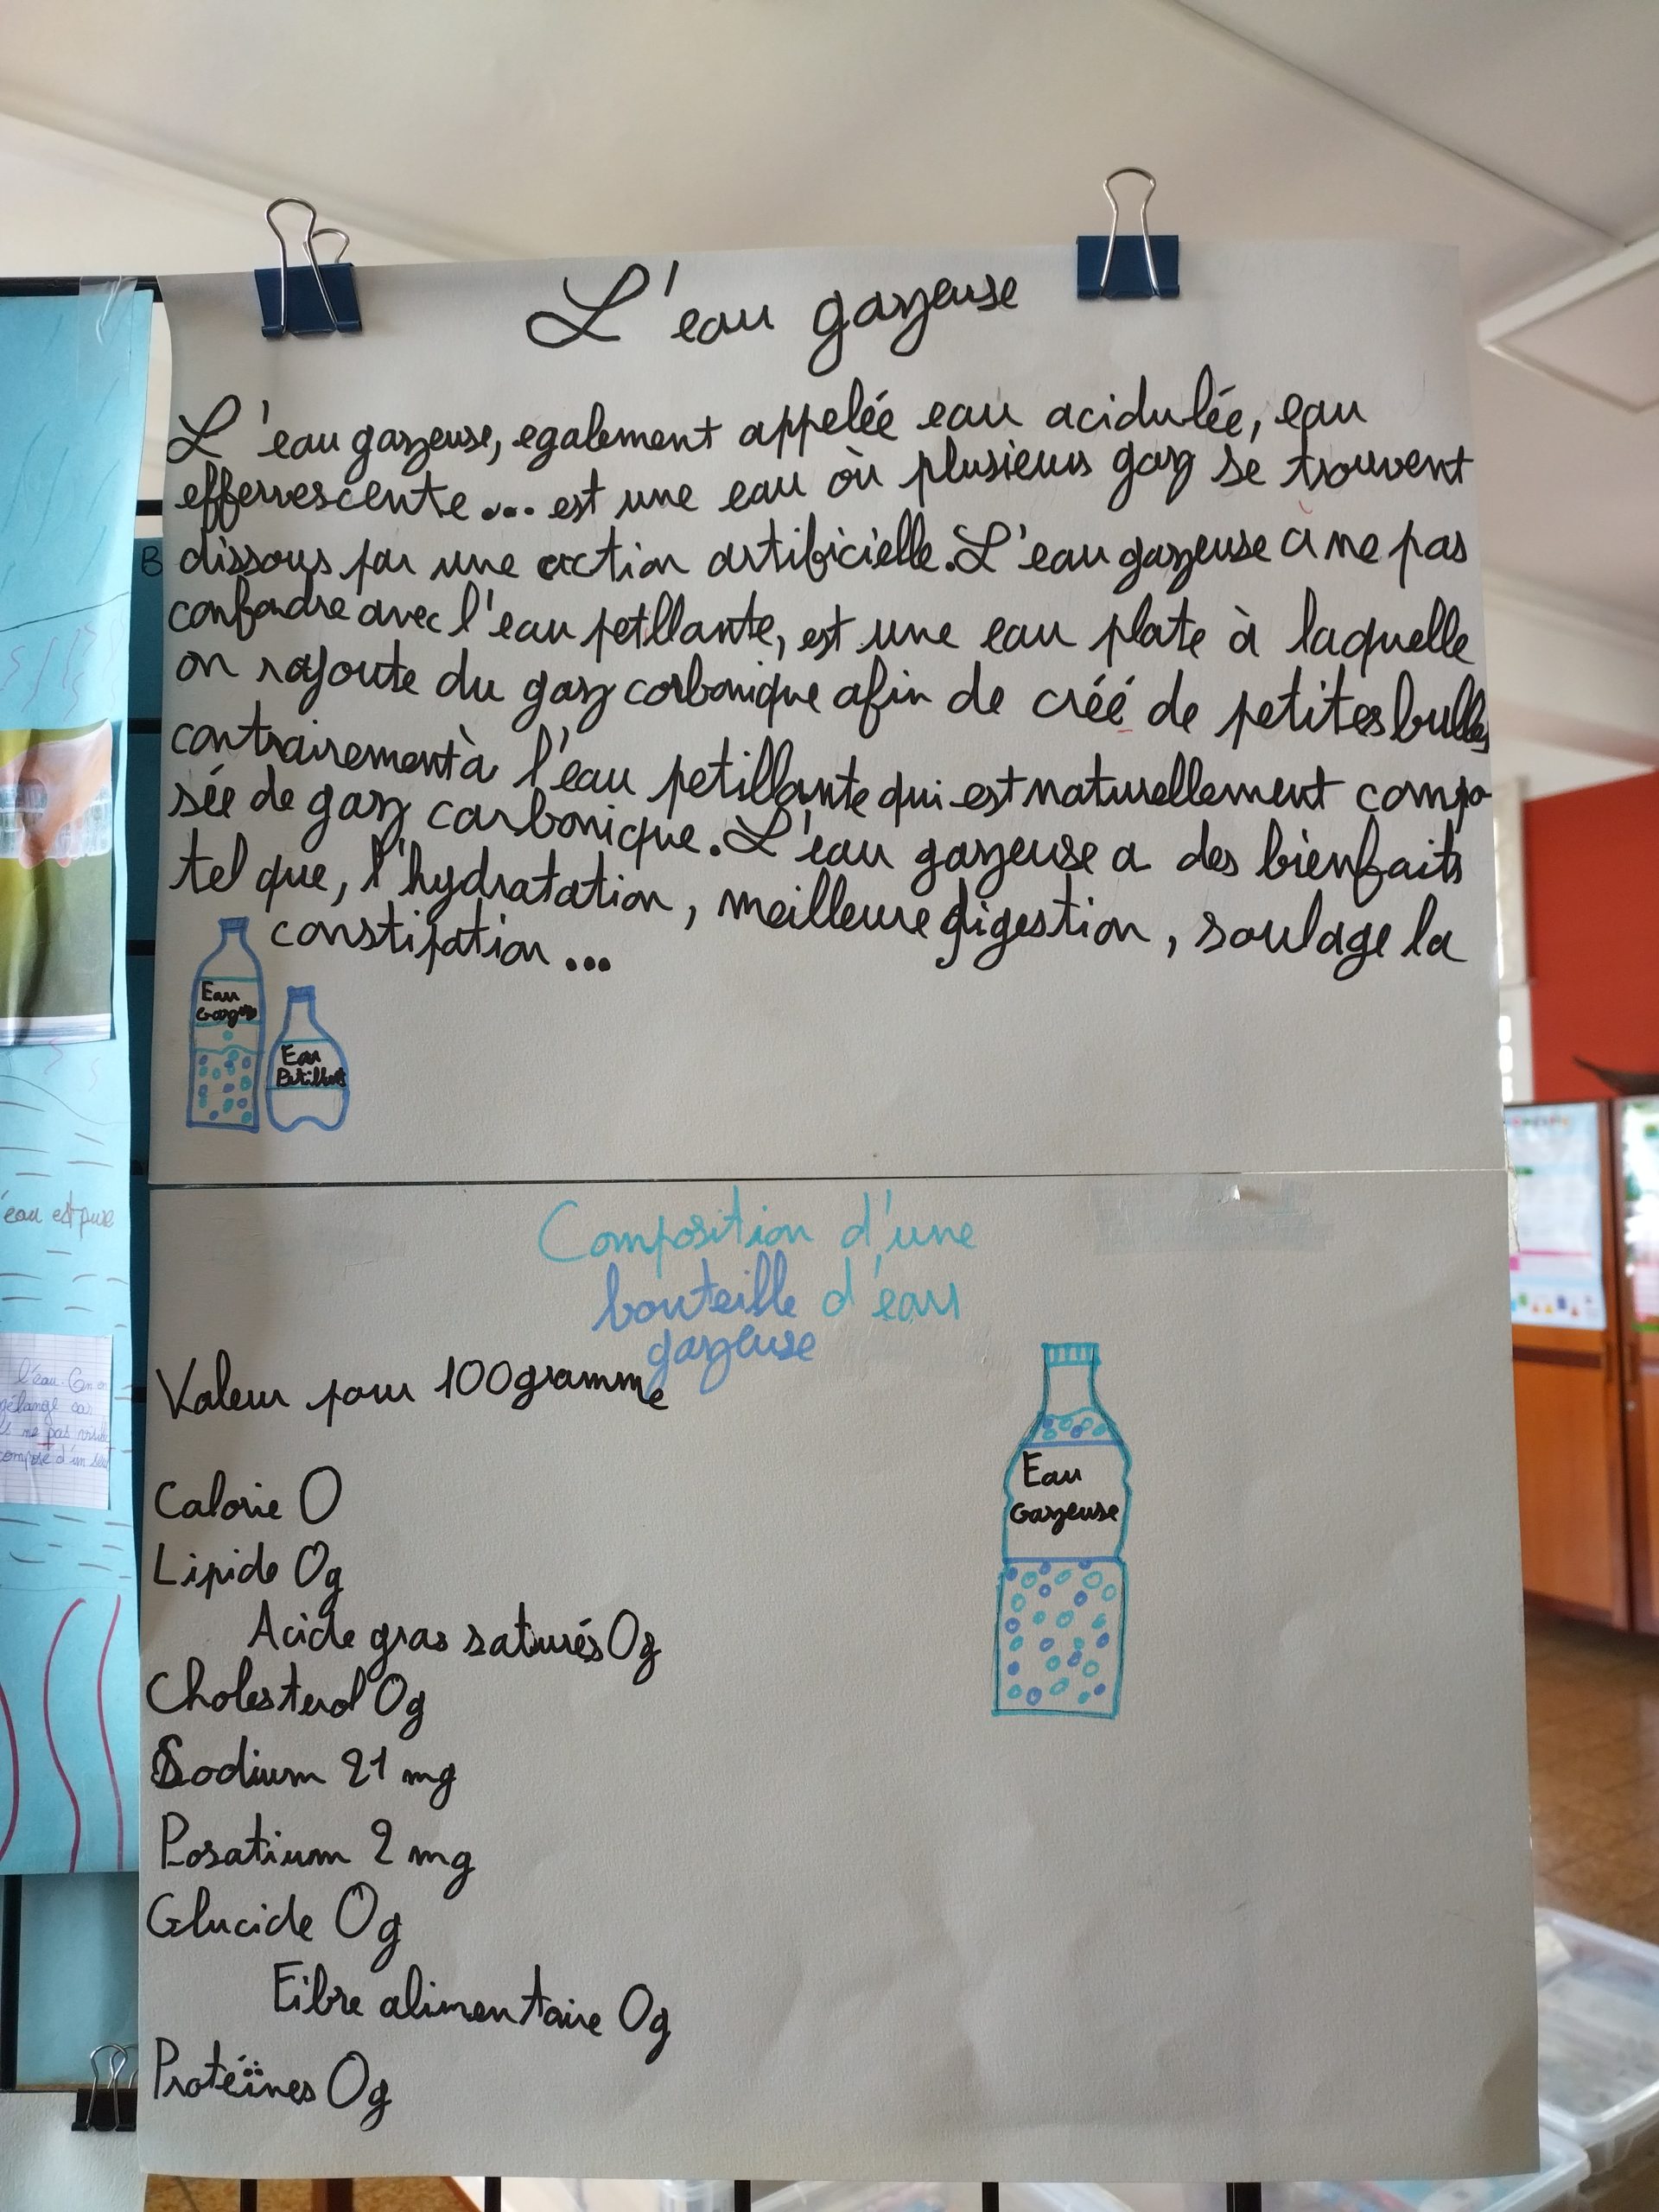 L'eau gazeuse
L'eau gazeuse, egalement appelée eau acidulée, eau
effervescente... est une eau où plusieurs gaz se trouvent
dissous par une action artificielle. L'eau gazeuse à ne pas
confondre avec l'eau petillante, est une eau plate à laquelle
on rajoute du gaz carbonique afin de créé de petites bulles
contrairement à l'eau petillante qui est naturellement compo
sée de gaz carbonique. L'eau gazeuse a des bienfaits
tel que, l'hydratation, meilleure digestion, soulage la
constipation...
Eau
Eau
Petillante
Composition d'une
bouteille d'eau
gazeuse
Valeur pour 100gramme
Calorie 0
Lipide 0g
Acide gras saturés 0g
Cholesterol 0g
Sodium 21 mg
Posatium 2 mg
Glucide 0g
Fibre alimentaire 0g
Protéïnes 0g
Eau
Gazeuse
B
eau est pure
l'eau. On
mélange
ne pas
composé d'un seul